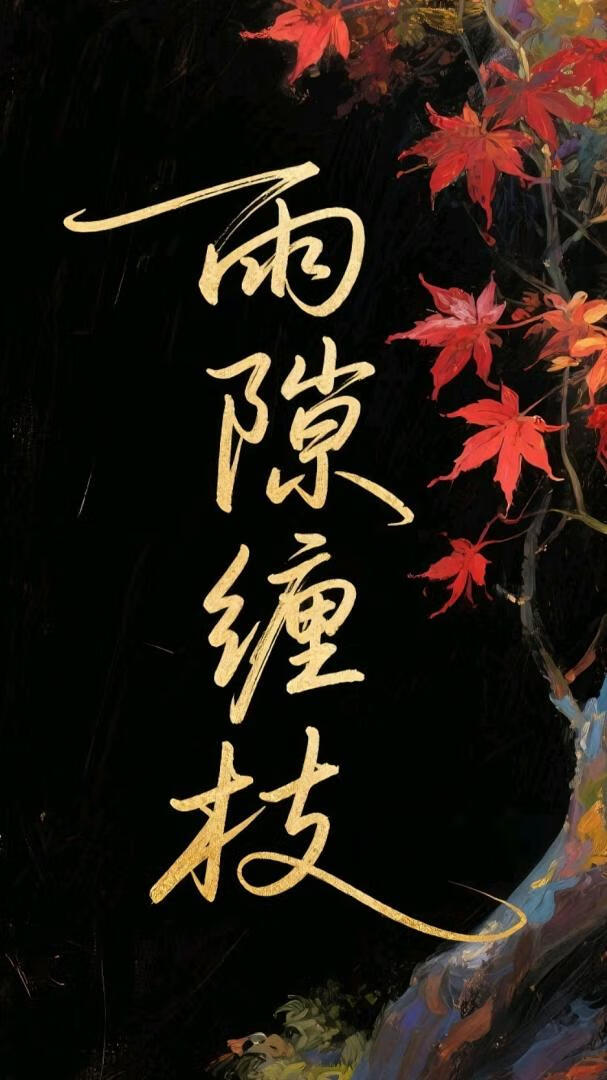 雨隙缠枝